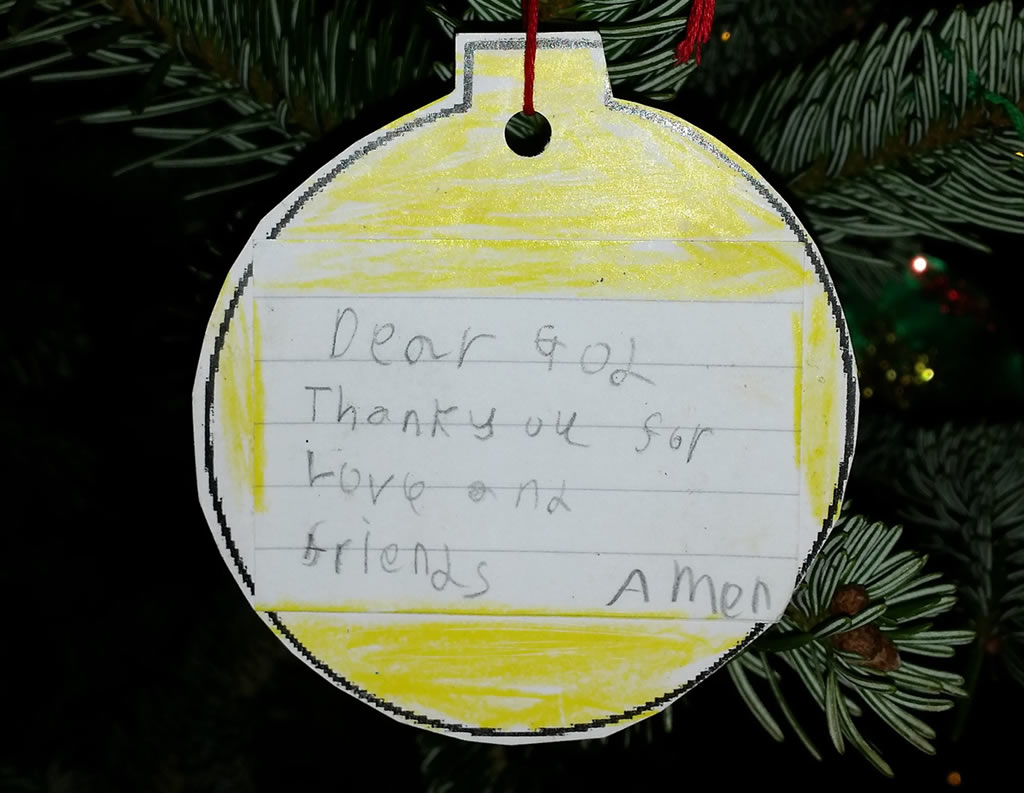 Dear God
Thankyou for
Love and
friends Amen